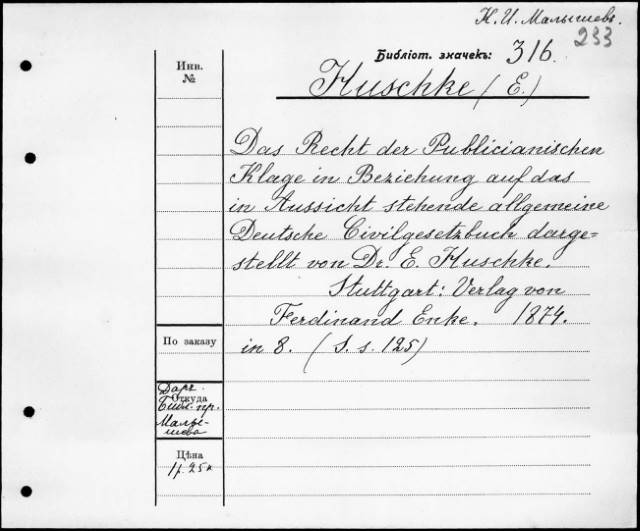 К. И. Малышевъ
233
Библіот. значекъ: 316.
Инв.
№
Huschke (E.)
Das Recht der Publicianischen
Klage in Beziehung auf das
in Aussicht stehende allgemeine
Deutsche Civilgesetzbuch darge=
stellt von Dr. E. Huschke.
Stuttgart: Verlag von
Ferdinand Enke. 1874.
in 8. (S. s. 125)
По заказу
Откуда
Даръ
Библ. пр.
Малы-
шева
Цѣна
1р. 25к